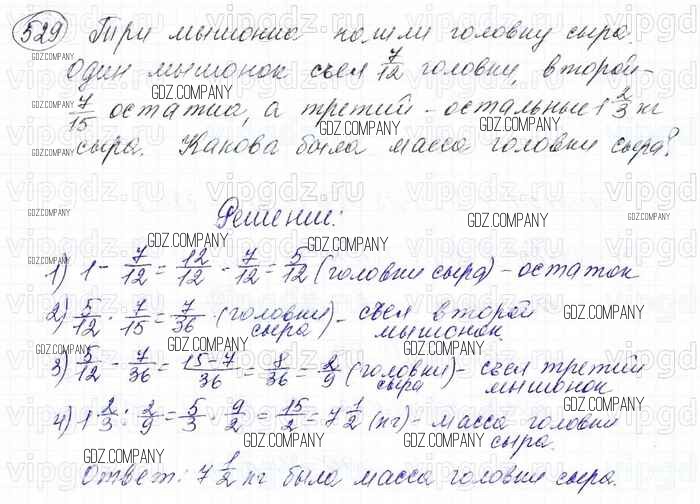 529 Три мышонка нашли головку сыра.
Один мышонок съел 7/12 головки, второй -
7/15 остатка, а третий - остальные 1 2/3 кг
сыра. Какова была масса головки сыра?
Решение:
1) 1 - 7/12 = 12/12 - 7/12 = 5/12 (головки сыра) - остаток
2) 5/12 · 7/15 = 7/36 (головки сыра) - съел второй мышонок.
3) 5/12 - 7/36 = 15-7/36 = 8/36 = 2/9 (головки сыра) - съел третий мышонок
4) 1 2/3 : 2/9 = 5/3 · 9/2 = 15/2 = 7 1/2 (кг) - масса головки сыра.
Ответ: 7 1/2 кг была масса головки сыра.
GDZ.COMPANY
vipgdz.ru